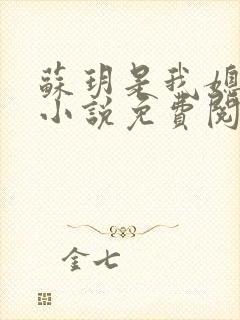 蘇玥是我媳
小說免費閱
金七